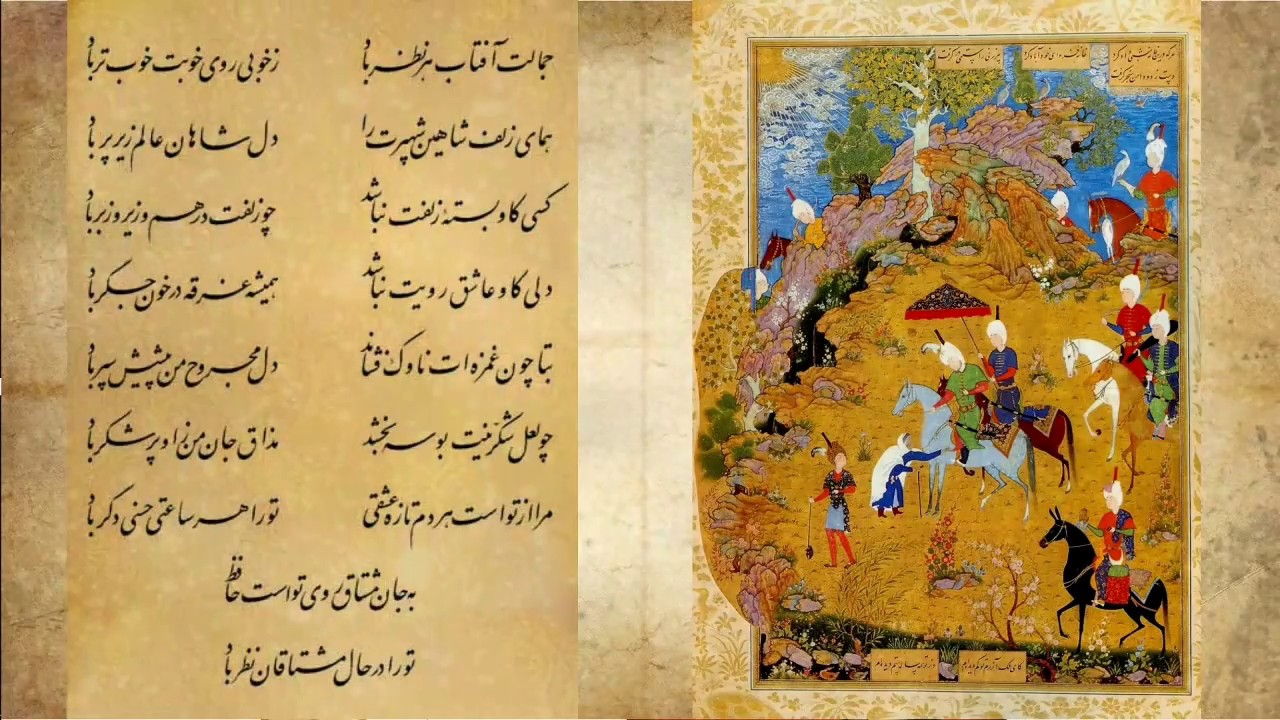 جمالت آفتاب هر نظر باد ز خوبی روی خوبت خوب تر باد
همای زلف شاهین شهپرت را دل شاهان عالم زیر پر باد
کسی کاو بستهٔ زلفت نباشد چو زلفت درهم و زیر و زبر باد
دلی کاو عاشق رویت نباشد همیشه غرقه در خون جگر باد
بتا چون غمزه ات ناوک فشاند دل مجروح من پیشش سپر باد
چو لعل شکرینت بوسه بخشد مذاق جان من ز او پر شکر باد
مرا از تو است هر دم تازه عشقی تو را هر ساعتی حسنی دگر باد
به جان مشتاق روی تو است حافظ
تو را در حال مشتاقان نظر باد
پیرزنی را ستمی درگرفت
دست زد و دامن سنجر گرفت
کای ملک آزرم تو کم دیده‌ام وز تو همه ساله ستم دیده‌ام